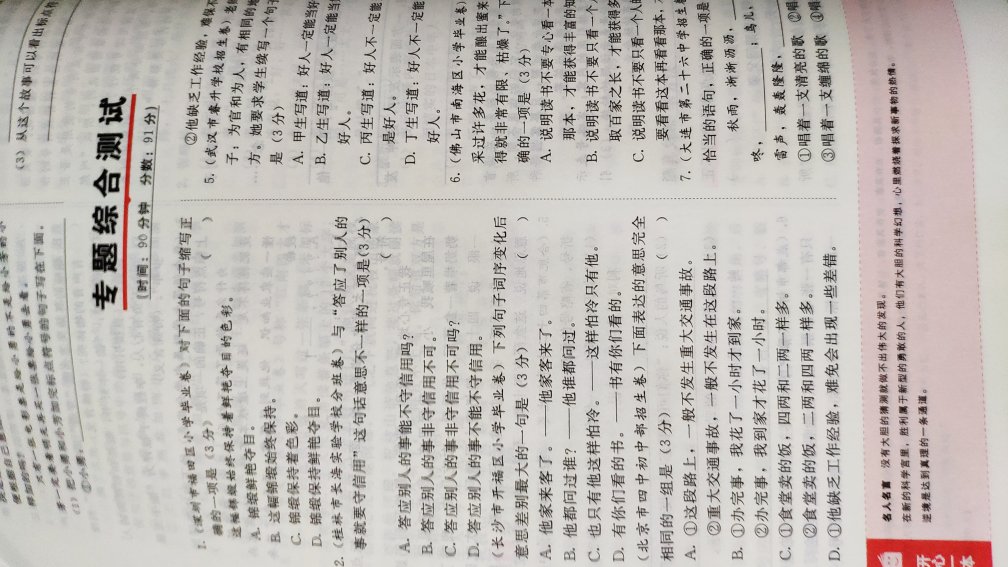 专题综合测试
(时间：90分钟 分数：91分)
1.(深圳市福田区小学毕业卷)对下面的句子缩写正
确的一项是(3分) ( )
这幅锦缎始终保持着鲜艳夺目的色彩。
A. 锦缎鲜艳夺目。
B. 这幅锦缎始终保持。
C. 锦缎保持着色彩。
D. 锦缎保持鲜艳夺目。
2.(桂林市长海实验学校分班卷)与“答应了别人的
事就要守信用”这句话意思不一样的一项是(3分)
( )
A. 答应别人的事能不守信用吗？
B. 答应别人的事非守信用不可。
C. 答应别人的事非守信用不可吗？
D. 答应别人的事不能不守信用。
(长沙市开福区小学毕业卷)下列句子词序变化后
意思差别最大的一句是(3分) ( )
A. 他家来客了。——他家客来了。
B. 他都问过谁？——他谁都问过。
C. 也只有他这样怕冷。——这样怕冷只有他。
D. 有你们看的书。——书有你们看的。
(北京市四中初中部招生卷)下面表达的意思完全
相同的一组是(3分) ( )
A. ①这段路上，一般不发生重大交通事故。
②重大交通事故，一般不发生在这段路上。
B. ①办完事，我花了一小时才到家。
②办完事，我到家才花了一小时。
C. ①食堂卖的饭，四两和二两一样多。
②食堂卖的饭，二两和四两一样多。
D. ①他缺乏工作经验，难免会出现一些差错。
(3)从这个故事可以看出标点有
②他缺乏工作经验，难保不
5.(武汉市睿升学校招生卷)老师
子：为官和为人，有相同的地
方。她要求学生续写一个句子
是(3分)
A. 甲生写道：好人一定能当好
B. 乙生写道：好人一定能当
好人。
C. 丙生写道：好人不一定能
是好人。
D. 丁生写道：好人不一定能
好人。
6.(佛山市南海区小学毕业卷)
采过许多花，才能酿出蜜来
得就非常有限、枯燥了。”下
确的一项是(3分)
A. 说明读书不要专心看一本
那本，才能获得丰富的知
B. 说明读书不要只看一个人
取百家之长，才能获得多
C. 说明读书不要只看一个人的
要看看这本再看看那本，
7.(大连市第二十六中学招生
恰当的语句，正确的一项是
秋雨，淅淅沥沥，
咚，；鸟儿，
雷声，轰轰隆隆，
①唱着一支清亮的歌 ②唱
③唱着一支缠绵的歌 ④唱
名人名言 没有大胆的猜测就做不出伟大的发现。
在新的科学宫里，胜利属于新型的勇敢的人，他们有大胆的科学幻想，心里燃烧着探求新事物的热情。
逆境是达到真理的一条通道。
开心一本